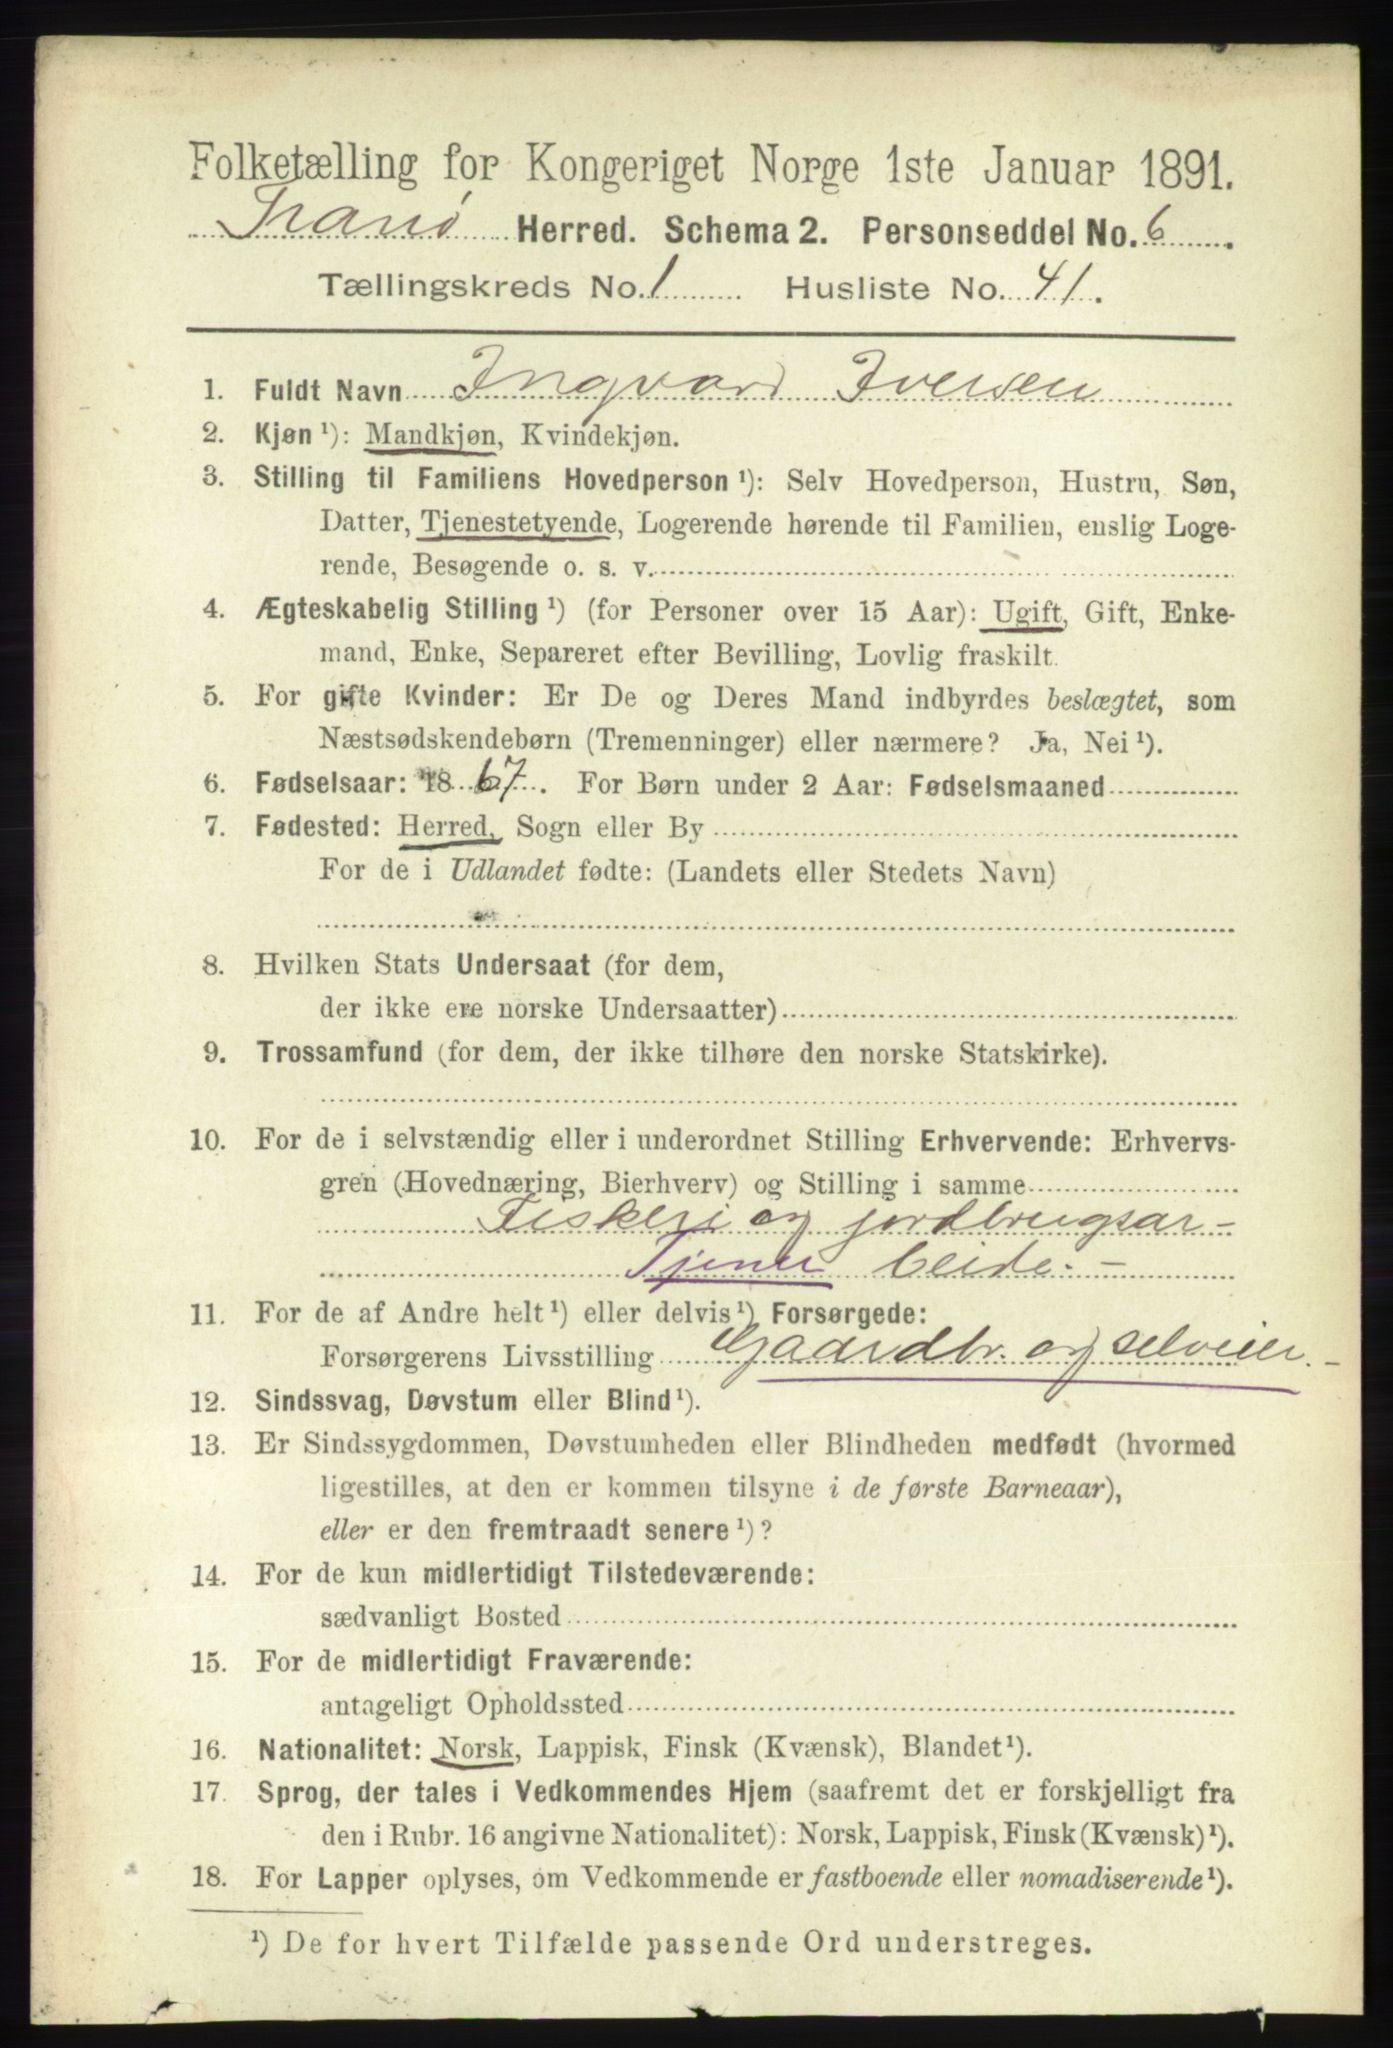 Folketælling for Kongeriget Norge 1ste Januar 1891.
Tranø Herred. Schema 2. Personseddel No. 6.
Tællingskreds No. 1 Husliste No. 41.
1. Fuldt Navn Ingvard Iversen
2. Kjøn ¹): Mandkjøn, Kvindekjøn.
3. Stilling til Familiens Hovedperson ¹): Selv Hovedperson, Hustru, Søn,
Datter, Tjenestetyende, Logerende hørende til Familien, enslig Loge-
rende, Besøgende o. s. v.
4. Ægteskabelig Stilling ¹) (for Personer over 15 Aar): Ugift, Gift, Enke-
mand, Enke, Separeret efter Bevilling, Lovlig fraskilt.
5. For gifte Kvinder: Er De og Deres Mand indbyrdes beslægtet, som
Næstsødskendebørn (Tremenninger) eller nærmere? Ja, Nei ¹).
6. Fødselsaar: 1867. For Børn under 2 Aar: Fødselsmaaned
7. Fødested: Herred, Sogn eller By
For de i Udlandet fødte: (Landets eller Stedets Navn)
8. Hvilken Stats Undersaat (for dem,
der ikke ere norske Undersaatter)
9. Trossamfund (for dem, der ikke tilhøre den norske Statskirke).
10. For de i selvstændig eller i underordnet Stilling Erhvervende: Erhvervs-
gren (Hovednæring, Bierhverv) og Stilling i samme
Fiskeri og jordbrugsar-
Tjener beide. -
11. For de af Andre helt ¹) eller delvis ¹) Forsørgede:
Forsørgerens Livsstilling Gaardbr. og selveier. -
12. Sindssvag, Døvstum eller Blind ¹).
13. Er Sindssygdommen, Døvstumheden eller Blindheden medfødt (hvormed
ligestilles, at den er kommen tilsyne i de første Barneaar),
eller er den fremtraadt senere ¹)?
14. For de kun midlertidigt Tilstedeværende:
sædvanligt Bosted
15. For de midlertidigt Fraværende:
antageligt Opholdssted
16. Nationalitet: Norsk, Lappisk, Finsk (Kvænsk), Blandet ¹).
17. Sprog, der tales i Vedkommendes Hjem (saafremt det er forskjelligt fra
den i Rubr. 16 angivne Nationalitet): Norsk, Lappisk, Finsk (Kvænsk) ¹).
18. For Lapper oplyses, om Vedkommende er fastboende eller nomadiserende ¹).
¹) De for hvert Tilfælde passende Ord understreges.